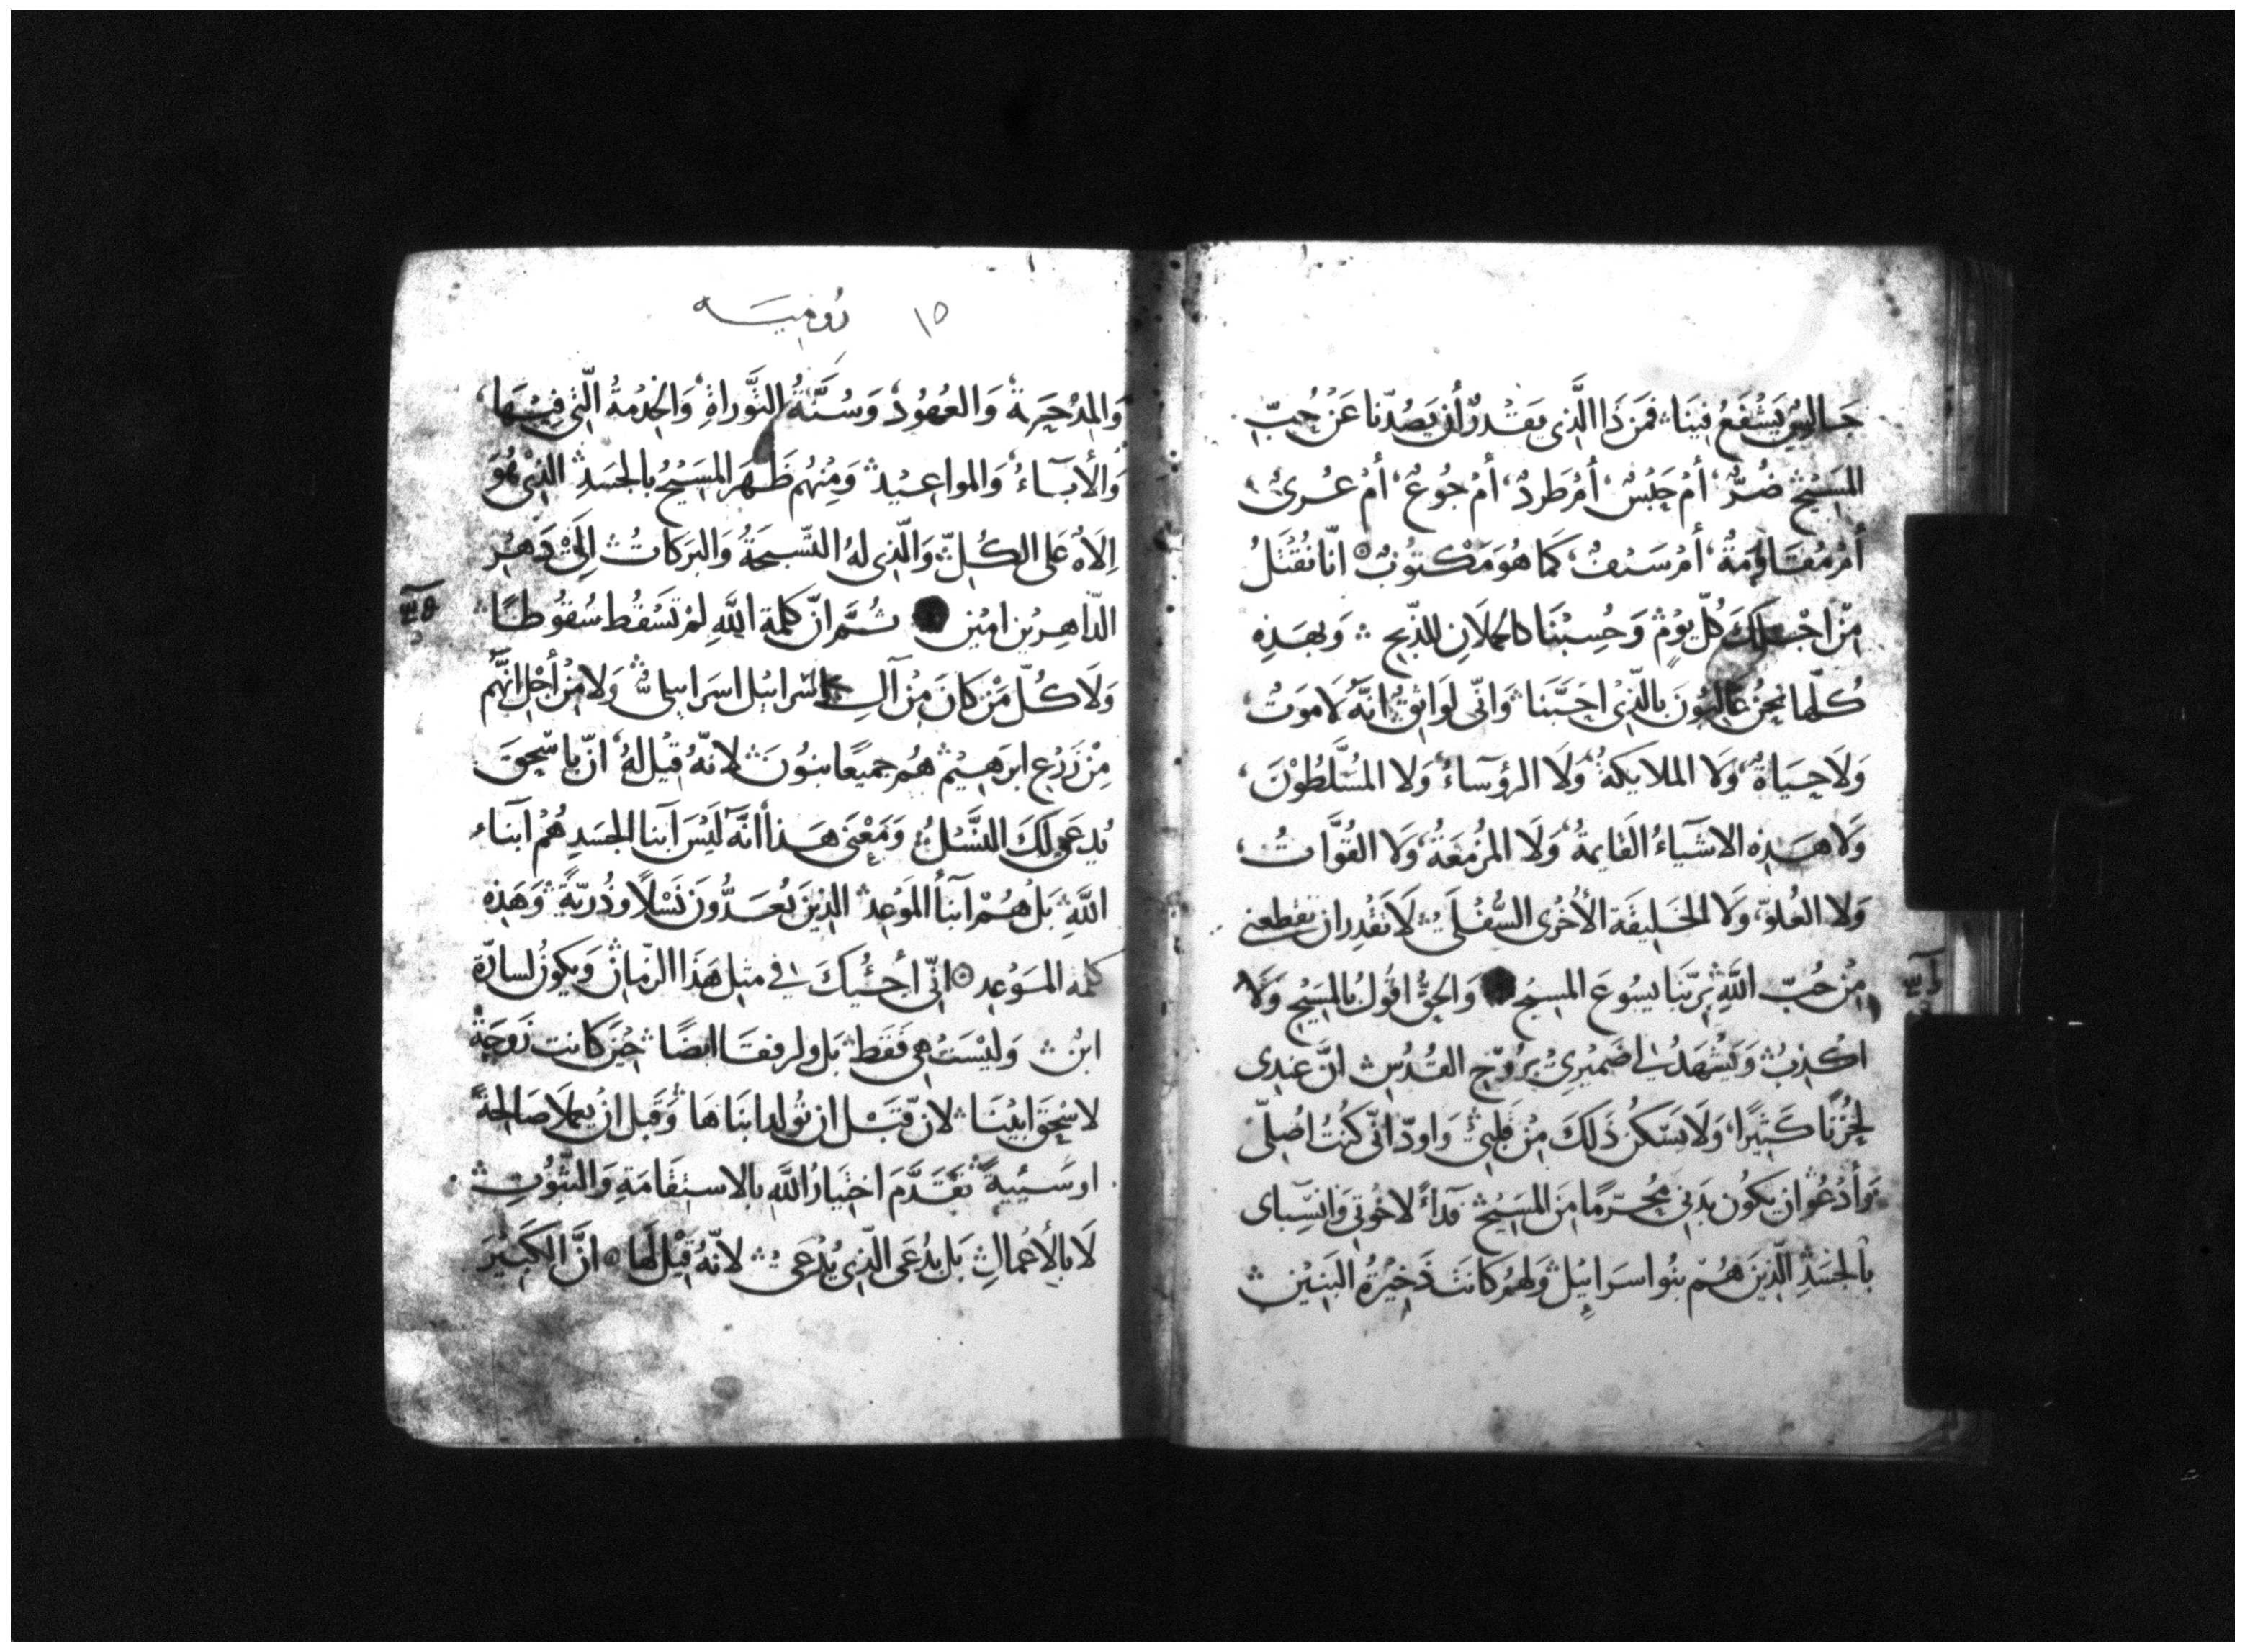 جَالِسٌ يَشْفَعُ فِينَا فَمَن ذَا الَّذِي يَقْدِرُ أَن يَصُدّنا عَنْ حُبِّ
المَسِيْحِ ضُرٌّ، أمْ حَبْسٌ، أَمْ طَرْدٌ، أمْ جُوعٌ، أمْ عُرىٌ،
أمْ مُقَاوَمَةٌ، أمْ سَيْفٌ، كَمَا هُوَ مَكْتوُبٌ انّا نُقْتَلُ
مِنْ اجْلِكَ كُلّ يَوْمٍ وَحُسِبْنَا كالحملانِ للذّبحِ وَبهَذِهِ
كُلّها نحنُ غالِبُونَ بالّذِي احَبَّنا وَانّى لَوَاثِقٌ انَّهُ لَا مَوتُ،
وَلَا حَيَاةُ، وَلا الملايكةُ، وَلَا الرؤسآءُ، وَلا المُسَّلَطُوْنَ،
وَلا هَذِهِ الاشَيَآءُ القَايمةُ، وَلَا المُزْمعَةُ، وَلا القُوَّاتُ،
وَلا العُلوّ، وَلا الخَلِيقَة الأُخْرى السُّفْلَى لَا تَقْدِر ان تقطعنى
مِنْ حُبِّ اللَّهِ بِرَبِّنَا يسُوعَ المسيحِ وَالحَقُّ اقُولُ بالمَسِيْحِ وَلَا
اكْذِبُ وَيَشْهَدُ لى ضَمِيْرِى بِرُوْحِ القُدُسِ انَّ عِندِى
لحُزْنًا كَثِيْرًا، وَلَا يَسْكُنُ ذَلِكَ مِنْ قَلْبِي وَاودّ انّى كُنتُ اصُلِّى
وَأدْعُو ان يكُون بدَنِى مُحَرّمًا مِنَ المَسِيْحِ فدآءً لاخْوتِى وَانْسِبآى
بالجَسَدِ الّذِينَ هُمْ بنُو اسرَاييْل وَلهُمْ كَانتَ ذَخِيْرَةُ البَنِيْن
١٥ رُوميَه
وَالمِدْحَرة وَالعُهُودُ وَسُنَّةُ التَّوراةِ وَالخِدْمَةُ الَّتِى فِيْهَا،
وَالأبآءُ، وَالمواعِيْد وَمِنْهُم ظَهَرَ المَسِيْحُ بالجَسَدِ الذِى هُوَ
اِلَاهٌ عَلى الكُلِّ وَالّذِى لهُ التّسبحَةُ وَالبَرَكاتُ اِلَى دَهْرِ
الدّاهِرِيْن امِيْن ثُمَّ انّ كلمةَ اللَّهِ لمْ تَسْقُط سُقوُطًا
وَلَا كُلّ مَنْ كانَ مِنْ آلِ اسرَاييْل اسرَاييلى وَلا مِنْ أجْلِ انَّهُم
مِنْ زَرْعِ ابرَهِيْم هُم جميعًا بنوُنَ لانّهُ قِيْل لهُ، انّ باسْحقَ
يُدعَى لَكَ النَّسْلُ وَمَعْنَى هَذا انَّهُ لَيْسَ آبنا الجَسَدِ هُمْ آبنَاء
اللَّهِ بَلْ هُمْ آبنأ المَوْعِدِ الذِينَ يُعَدُّونَ نَسْلًا وذُريّةً وَهَذِهِ
كلمة المَوْعِد انّى أجئيُكَ فى مثل هَذَا الزمَان وَيكونُ لسَارّة
ابْن وَليْسَتْ هِى فَقَط بَل وَلرفقَا ايضًا حِيْنَ كَانت زَوجَةً
لاسْحقَ ابيْنَا لانّ قَبْل ان تُولد ابنَاهَا وَقَبل انْ يعملَا صَالحِةً
او سَيّيةً تقَدَّمَ اخْتِيَارُ اللَّهِ بالاستِقَامَةِ وَالثّبُوتِ
لَا بالأعْمَالِ بَل يدُعَى الّذِى يُدْعَى لانّهُ قِيْل لَهَا انَّ الكَبِيْرَ